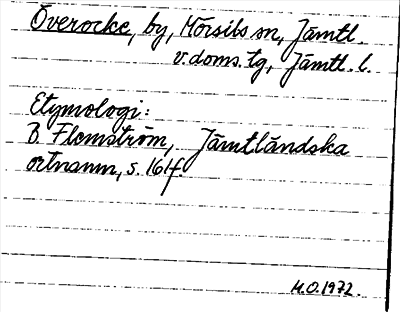 Överocke, by, Mörsils sn, Jämtl.
v. doms. tg, Jämtl. l.
Etymologi:
B. Flemström, Jämtländska
ortnamn, s. 161f.
M.O. 1972.